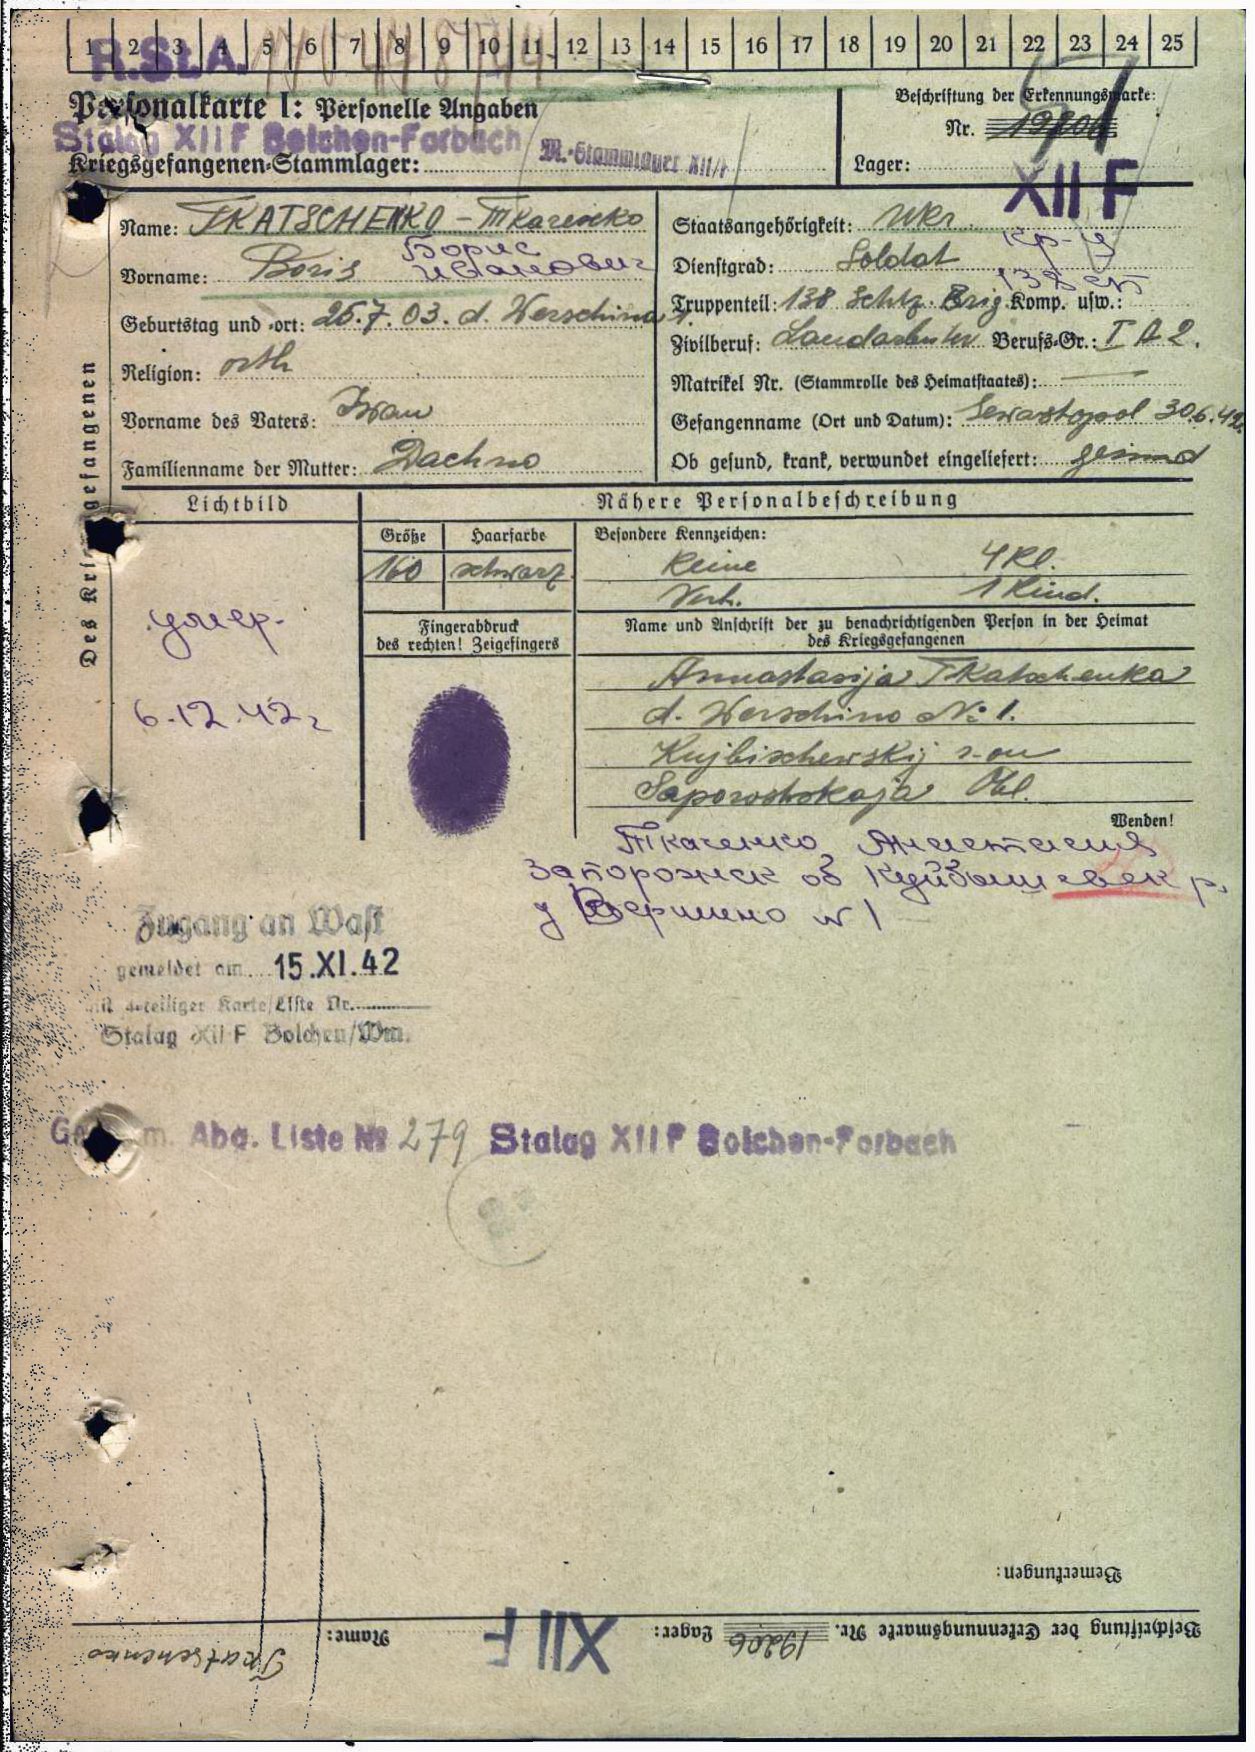 1 2 3 4 5 6 7 8 9 10 11 12 13 14 15 16 17 18 19 20 21 22 23 24 25
R.St.A.
Personalkarte I: Personelle Angaben
Beschriftung der Erkennungsmarke:
Nr.
Stalag XII F Bolchen-Forbach
Kriegsgefangenen-Stammlager: M.-Stammlager XII/F
Lager: XII F
Des Kriegsgefangenen
Name: TKATSCHENKO - Ткаченко
Vorname: Boris Борис Иванович
Geburtstag und -ort: 25.7.03. d. Werschina 1.
Religion: orth
Vorname des Vaters: Iwan
Familienname der Mutter: Dachno
Staatsangehörigkeit: Ukr.
кр-ц
Dienstgrad: Soldat
138
Truppenteil: 138 Schtz. Brig Komp. usw.:
Zivilberuf: Landarbeiter Berufs-Gr.: I A 2.
Matrikel Nr. (Stammrolle des Heimatstaates): —
Gefangenname (Ort und Datum): Sewastopol 30.6.42.
Ob gesund, krank, verwundet eingeliefert: gesund
Lichtbild
Nähere Personalbeschreibung
Größe Haarfarbe Besondere Kennzeichen:
160 schwarz Keine 4 Kl.
Verh. 1 Kind.
Fingerabdruck
des rechten! Zeigefingers
Name und Anschrift der zu benachrichtigenden Person in der Heimat
des Kriegsgefangenen
умер.
6.12.42г
Annastasija Tkatschenka
d. Werschino № 1.
Kujbischewskij r-on
Saporoshskaja Obl.
Wenden!
Ткаченко Анастасия
Запорожск об Куйбышевск р.
у Вершино № 1
Zugang an Wast
gemeldet am 15.XI.42
mit derteiliger Karte/Liste Nr.
Stalag XII F Bolchen/Wm.
Abg. Liste № 279 Stalag XII F Bolchen-Forbach
Bemerkungen:
Beschriftung der Erkennungsmarke Nr. 19206 Lager: XII F Name: Tkatschenko